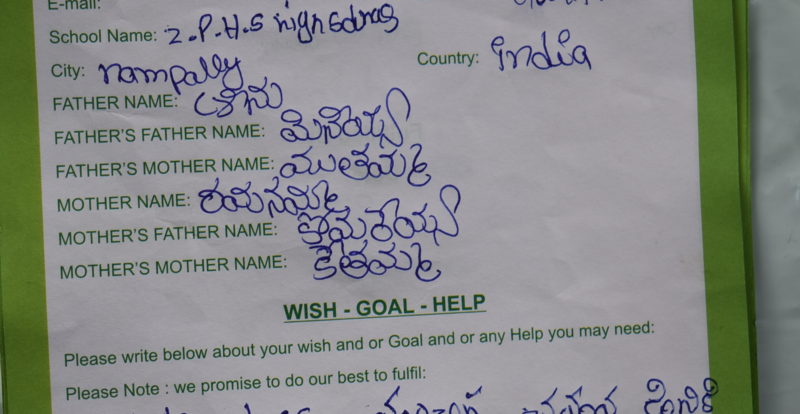 E-mail:
School Name: Z.P.H.S
City: nampally Country: india
FATHER NAME: శ్రీను
FATHER'S FATHER NAME:
FATHER'S MOTHER NAME: ముతయ్మ
MOTHER NAME: రమనమ్మ
MOTHER'S FATHER NAME: కొమరయ్య
MOTHER'S MOTHER NAME: కేతమ్మ
WISH - GOAL - HELP
Please write below about your wish and or Goal and or any Help you may need:
Please Note : we promise to do our best to fulfil: